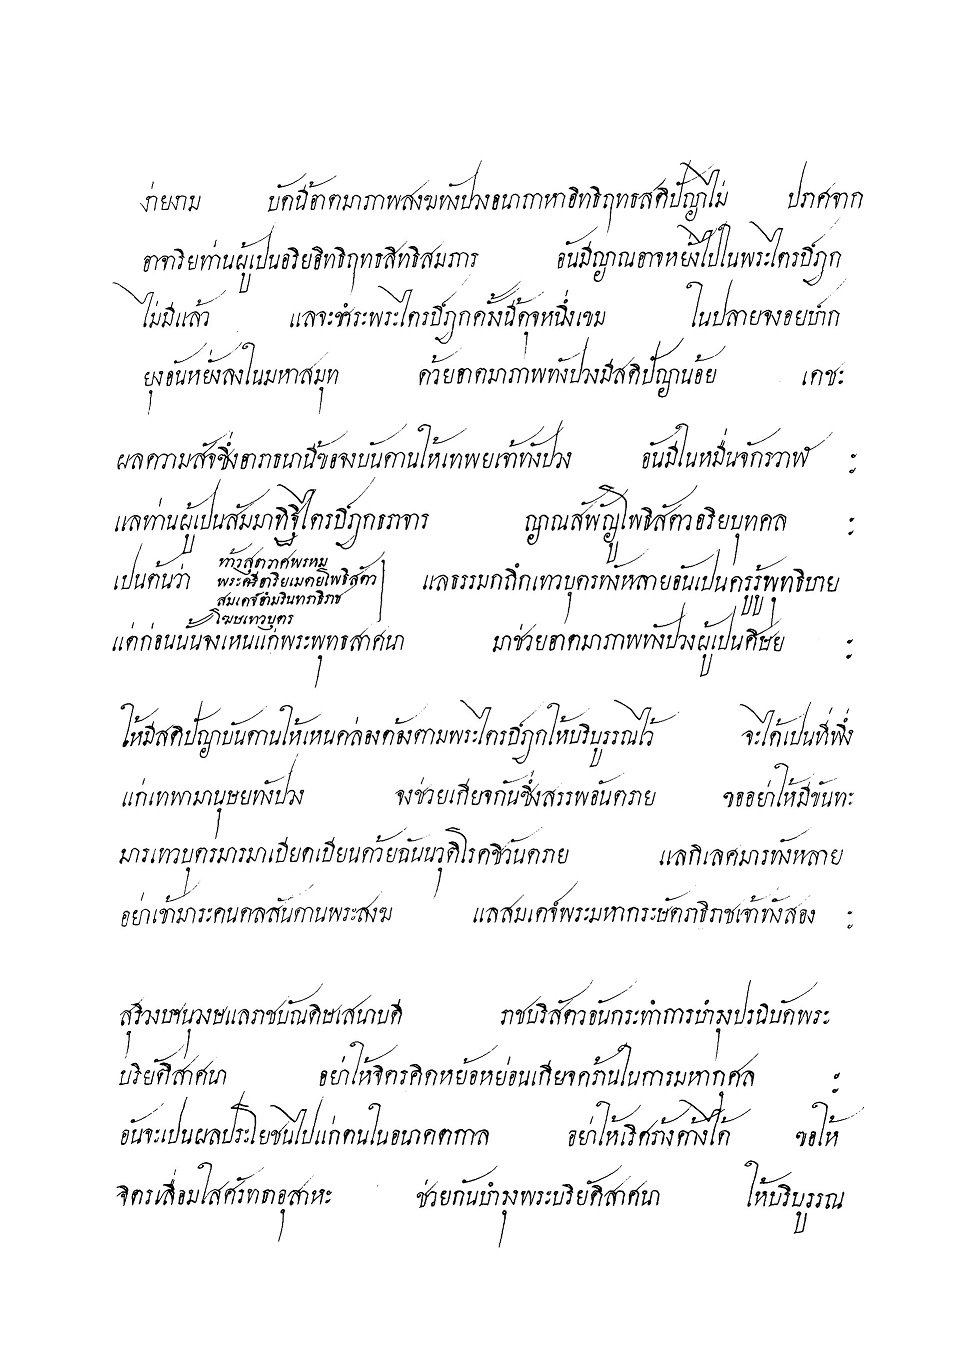 ง่ายงาม บัดนี้อาตมาภาพสงฆทังปวงอนาถาหาอิทธิฤทธสติปัญาไม่ ปราศจาก
อาจาริยท่านผู้เปนอริยอิทธิฤทธสิทธิสมภาร อันมีญาณอาจหยั่งไปในพระไตรปิฎก
ไม่มีแล้ว แลจะชำระพระไตรปิฎกครั้งนี้ดุจหนึ่งเขม ในปลายจงอยปาก
ยุงอันหยั่งลงในมหาสมุท ด้วยอาตมาภาพทังปวงมีสติปัญาน้อย เดชะ
ผลความสัจซึ่งอาราธนานี้ขอจงบันดานให้เทพยเจ้าทังปวง อันมีในหมื่นจักรวาฬ ะ
แลท่านผู้เปนสัมมาทิฐิไตรปิฎกธราจาร ญาณสัพัญูโพธิสัตวอริยบุทคล ะ
เปนต้นว่า
ท้าวสุตาวาศพรหม
พระศรีอาริยเมตยโพธิสัตว
สมเดจ์อำมรินทราธิราช
โฆษเทวบุตร
แลธรรมกถึกเทวบุตรทังหลายอันเปนครูรู้พุทธิบาย
แต่ก่อนนั้นจงเหนแก่พระพุทธสาศนา มาช่วยอาตมาภาพทังปวงผู้เปนศิษย ะ
ให้มีสติปัญาบันดานให้เหนคล่องต้องตามพระไตรปิฎกให้บริบูรรณไว้ จะได้เปนที่พึ่ง
แก่เทพามานุษยทังปวง จงช่วยเกียจกันซึ่งสรรพอันตราย ขออย่าให้มีขันทะ
มารเทวบุตรมารมาเบียดเบียนด้วยฉันนวุติโรคชีวันตราย แลกิเลศมารทังหลาย
อย่าเข้ามาระคนดลสันดานพระสงฆ แลสมเดจ์พระมหากระษัตราธิราชเจ้าทังสอง ะ
สุริวงษานุวงษแลราชบัณดิษเสนาบดี ราชบริสัตวอันกระทำการบำรุงปรนิบัดพระ
บริยัติสาศนา อย่าให้จิตรคิดหย้อหย่อนเกียจคร้านในการมหากุศล ะ
อันจะเปนผลประโยชนไปแก่ตนในอนาคตกาล อย่าให้เริศร้างค้างได้ ขอให้
จิตรเลื่อมใสศรัทธาอุสาหะ ช่วยกันบำรุงพระบริยัติสาศนา ให้บริบูรรณ